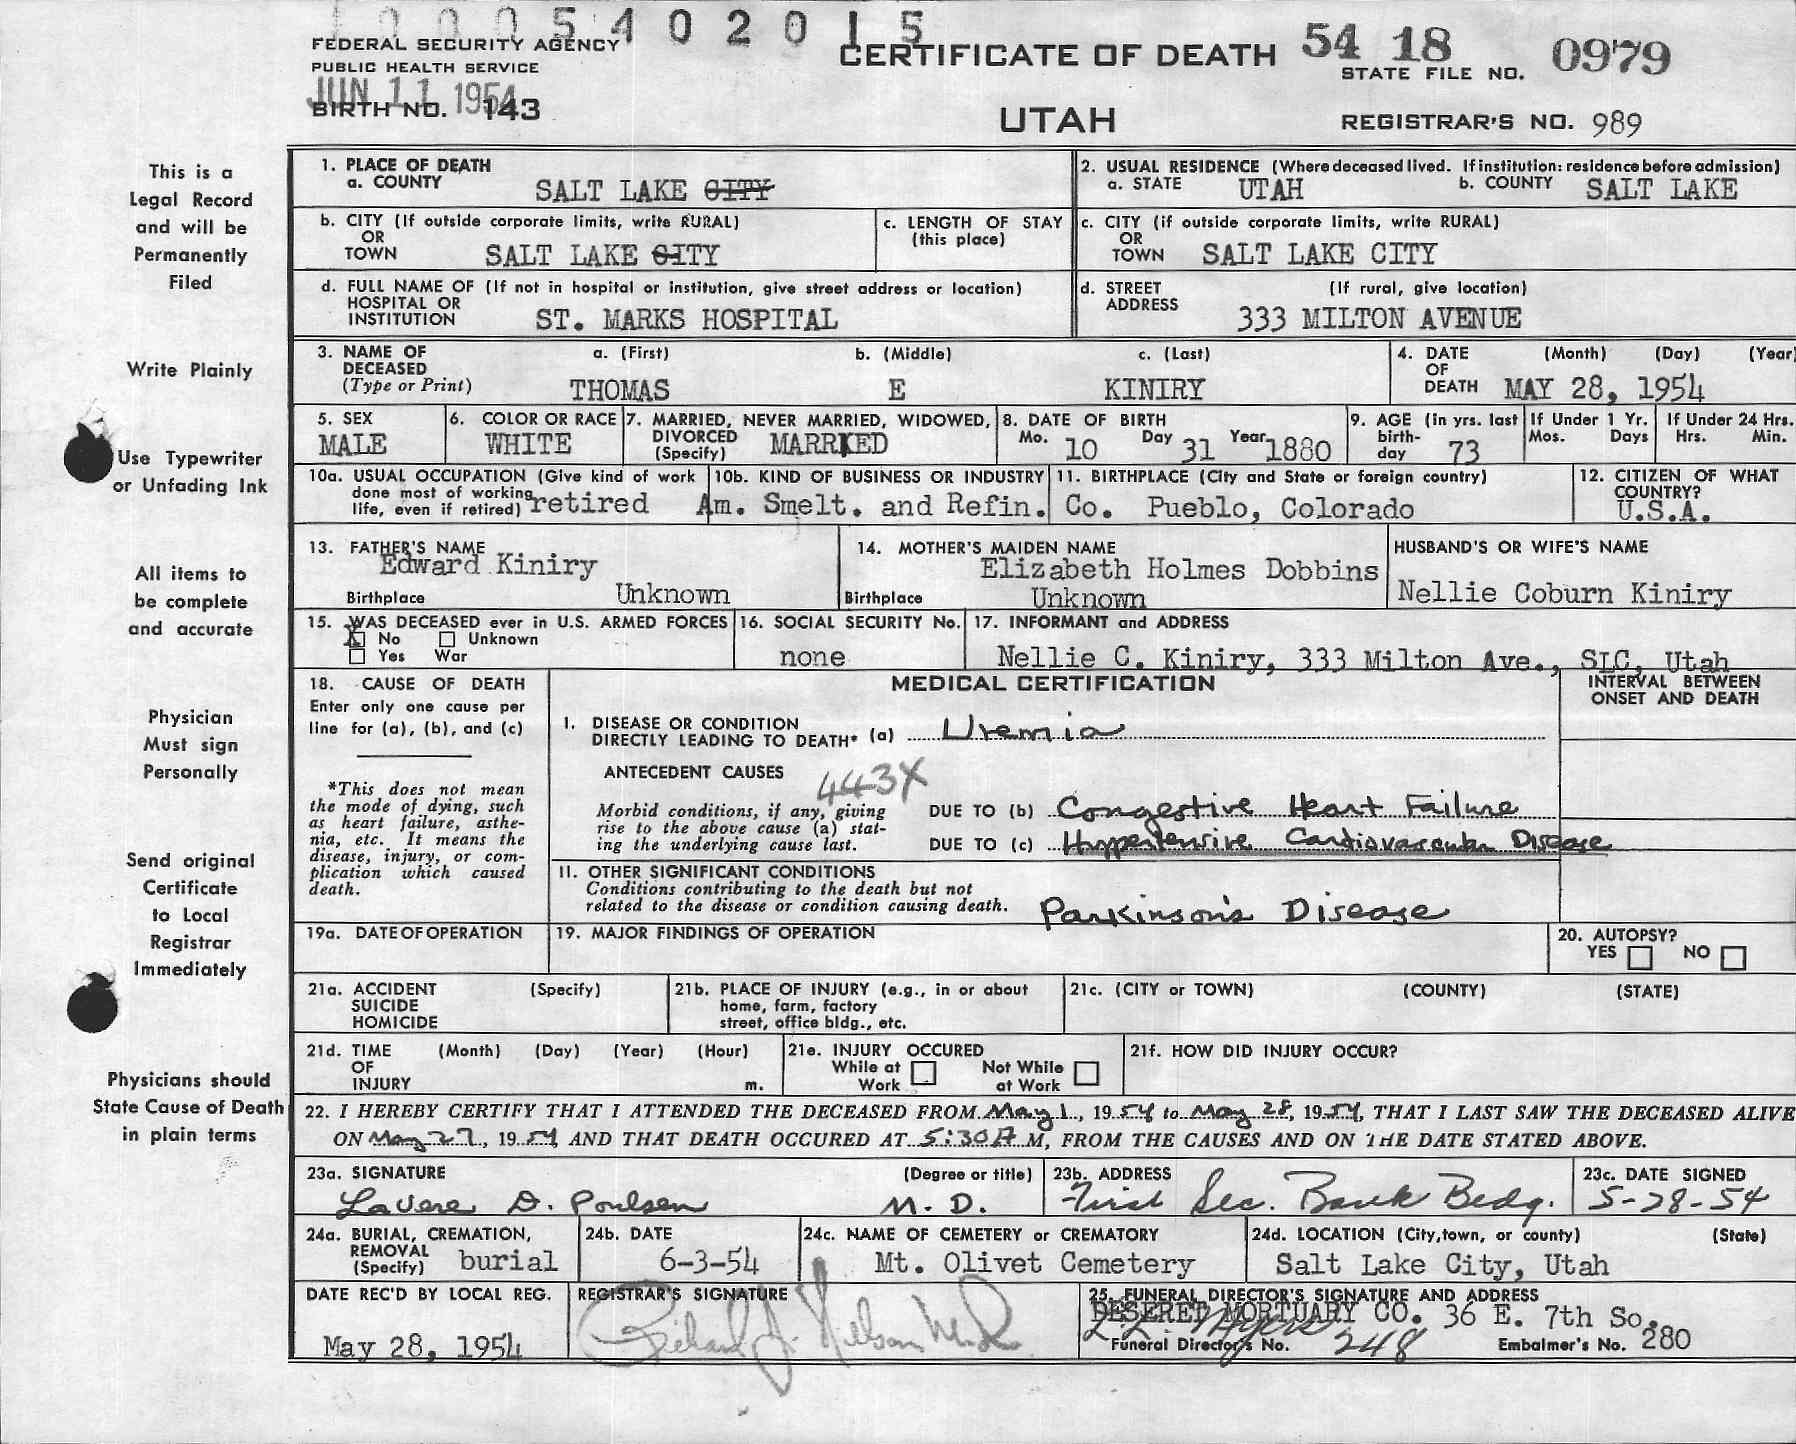 1 0 0 0 5 4 0 2 0 1 5
FEDERAL SECURITY AGENCY
PUBLIC HEALTH SERVICE
JUN 11 1954
BIRTH NO. 143
CERTIFICATE OF DEATH
UTAH
54 18 0979
STATE FILE NO.
REGISTRAR'S NO. 989
This is a
Legal Record
and will be
Permanently
Filed
Write Plainly
Use Typewriter
or Unfading Ink
All items to
be complete
and accurate
Physician
Must sign
Personally
Send original
Certificate
to Local
Registrar
Immediately
Physicians should
State Cause of Death
in plain terms
1. PLACE OF DEATH
a. COUNTY SALT LAKE CITY
2. USUAL RESIDENCE (Where deceased lived. If institution: residence before admission)
a. STATE UTAH b. COUNTY SALT LAKE
b. CITY (If outside corporate limits, write RURAL)
OR
TOWN SALT LAKE CITY
c. LENGTH OF STAY
(this place)
c. CITY (if outside corporate limits, write RURAL)
OR
TOWN SALT LAKE CITY
d. FULL NAME OF (If not in hospital or institution, give street address or location)
HOSPITAL OR
INSTITUTION ST. MARKS HOSPITAL
d. STREET (If rural, give location)
ADDRESS
333 MILTON AVENUE
3. NAME OF a. (First) b. (Middle) c. (Last)
DECEASED
(Type or Print) THOMAS E KINIRY
4. DATE (Month) (Day) (Year)
OF
DEATH MAY 28, 1954
5. SEX
MALE
6. COLOR OR RACE
WHITE
7. MARRIED, NEVER MARRIED, WIDOWED,
DIVORCED MARRIED
(Specify)
8. DATE OF BIRTH
Mo. 10 Day 31 Year 1880
9. AGE (in yrs. last
birth-
day 73
If Under 1 Yr.
Mos. Days
If Under 24 Hrs.
Hrs. Min.
10a. USUAL OCCUPATION (Give kind of work
done most of working
life, even if retired) retired
10b. KIND OF BUSINESS OR INDUSTRY
Am. Smelt. and Refin. Co.
11. BIRTHPLACE (City and State or foreign country)
Pueblo, Colorado
12. CITIZEN OF WHAT
COUNTRY?
U.S.A.
13. FATHER'S NAME
Edward Kiniry
Birthplace Unknown
14. MOTHER'S MAIDEN NAME
Elizabeth Holmes Dobbins
Birthplace Unknown
HUSBAND'S OR WIFE'S NAME
Nellie Coburn Kiniry
15. WAS DECEASED ever in U.S. ARMED FORCES
X No Unknown
Yes War
16. SOCIAL SECURITY No.
none
17. INFORMANT and ADDRESS
Nellie C. Kiniry, 333 Milton Ave., SLC, Utah
18. CAUSE OF DEATH
Enter only one cause per
line for (a), (b), and (c)
*This does not mean
the mode of dying, such
as heart failure, asthe-
nia, etc. It means the
disease, injury, or com-
plication which caused
death.
MEDICAL CERTIFICATION
INTERVAL BETWEEN
ONSET AND DEATH
I. DISEASE OR CONDITION
DIRECTLY LEADING TO DEATH* (a) Uremia
ANTECEDENT CAUSES 443X
Morbid conditions, if any, giving
rise to the above cause (a) stat-
ing the underlying cause last.
DUE TO (b) Congestive Heart Failure
DUE TO (c) Hypertensive Cardiovascular Disease
II. OTHER SIGNIFICANT CONDITIONS
Conditions contributing to the death but not
related to the disease or condition causing death. Parkinson's Disease
19a. DATE OF OPERATION
19. MAJOR FINDINGS OF OPERATION
20. AUTOPSY?
YES NO
21a. ACCIDENT (Specify)
SUICIDE
HOMICIDE
21b. PLACE OF INJURY (e.g., in or about
home, farm, factory
street, office bldg., etc.
21c. (CITY or TOWN) (COUNTY) (STATE)
21d. TIME (Month) (Day) (Year) (Hour)
OF
INJURY m.
21e. INJURY OCCURED
While at Not While
Work at Work
21f. HOW DID INJURY OCCUR?
22. I HEREBY CERTIFY THAT I ATTENDED THE DECEASED FROM May 1, 1954 to May 28, 1954, THAT I LAST SAW THE DECEASED ALIVE
ON May 27, 1954 AND THAT DEATH OCCURED AT 5:30A M, FROM THE CAUSES AND ON THE DATE STATED ABOVE.
23a. SIGNATURE (Degree or title)
LaVere D. Poulsen M.D.
23b. ADDRESS
First Sec. Bank Bldg.
23c. DATE SIGNED
5-28-54
24a. BURIAL, CREMATION,
REMOVAL
(Specify) burial
24b. DATE
6-3-54
24c. NAME OF CEMETERY or CREMATORY
Mt. Olivet Cemetery
24d. LOCATION (City, town, or county) (State)
Salt Lake City, Utah
DATE REC'D BY LOCAL REG.
May 28, 1954
REGISTRAR'S SIGNATURE
Richard J. Nelson
25. FUNERAL DIRECTOR'S SIGNATURE AND ADDRESS
DESERET MORTUARY CO. 36 E. 7th So.
Funeral Director's No. 248 Embalmer's No. 280